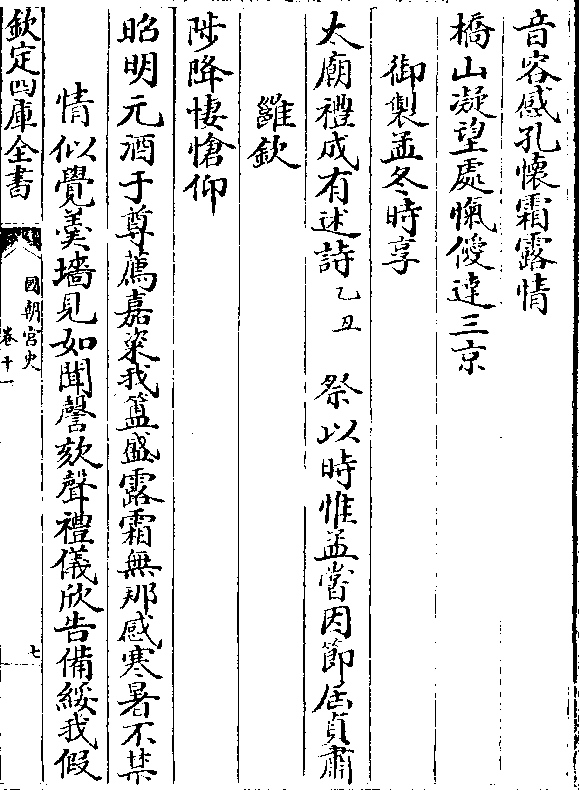 音容感孔懐霜露情
橋山凝望處愾僾達三京
御製孟冬時享
太廟禮成有述詩乙丑　祭以時惟孟嘗因節届貞肅
雝欽
陟降悽愴仰
昭明元酒于尊薦嘉粢我簋盛露霜無那感寒暑不禁
情似覺羮墻見如聞謦欬聲禮儀欣告備綏我假
欽定四庫全書
國朝宮史
卷十一
七